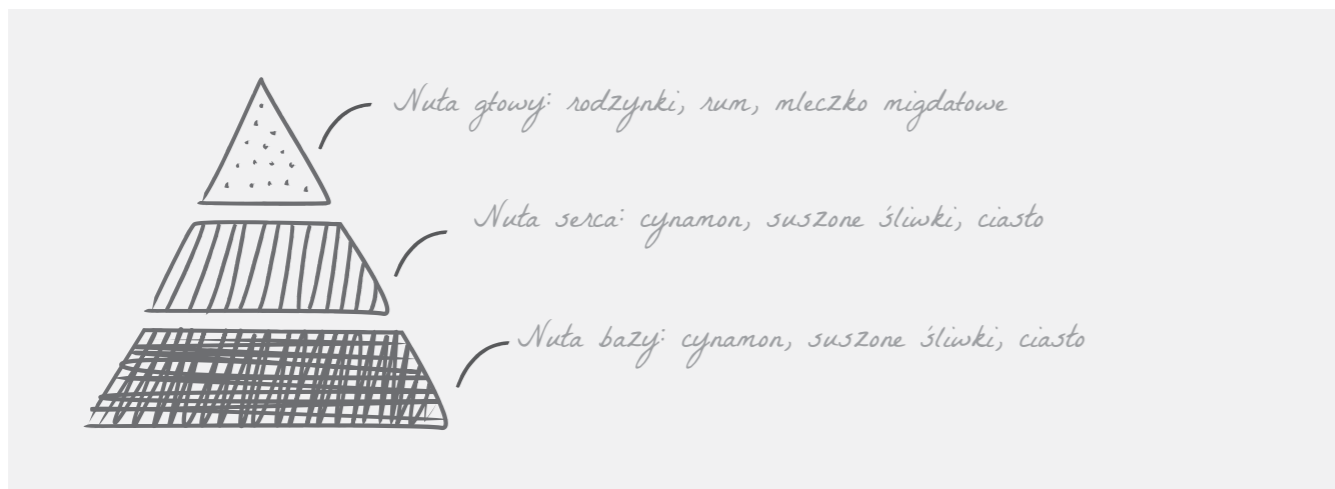 Nuta głowy: rodzynki, rum, mleczko migdałowe
Nuta serca: cynamon, suszone śliwki, ciasto
Nuta bazy: cynamon, suszone śliwki, ciasto